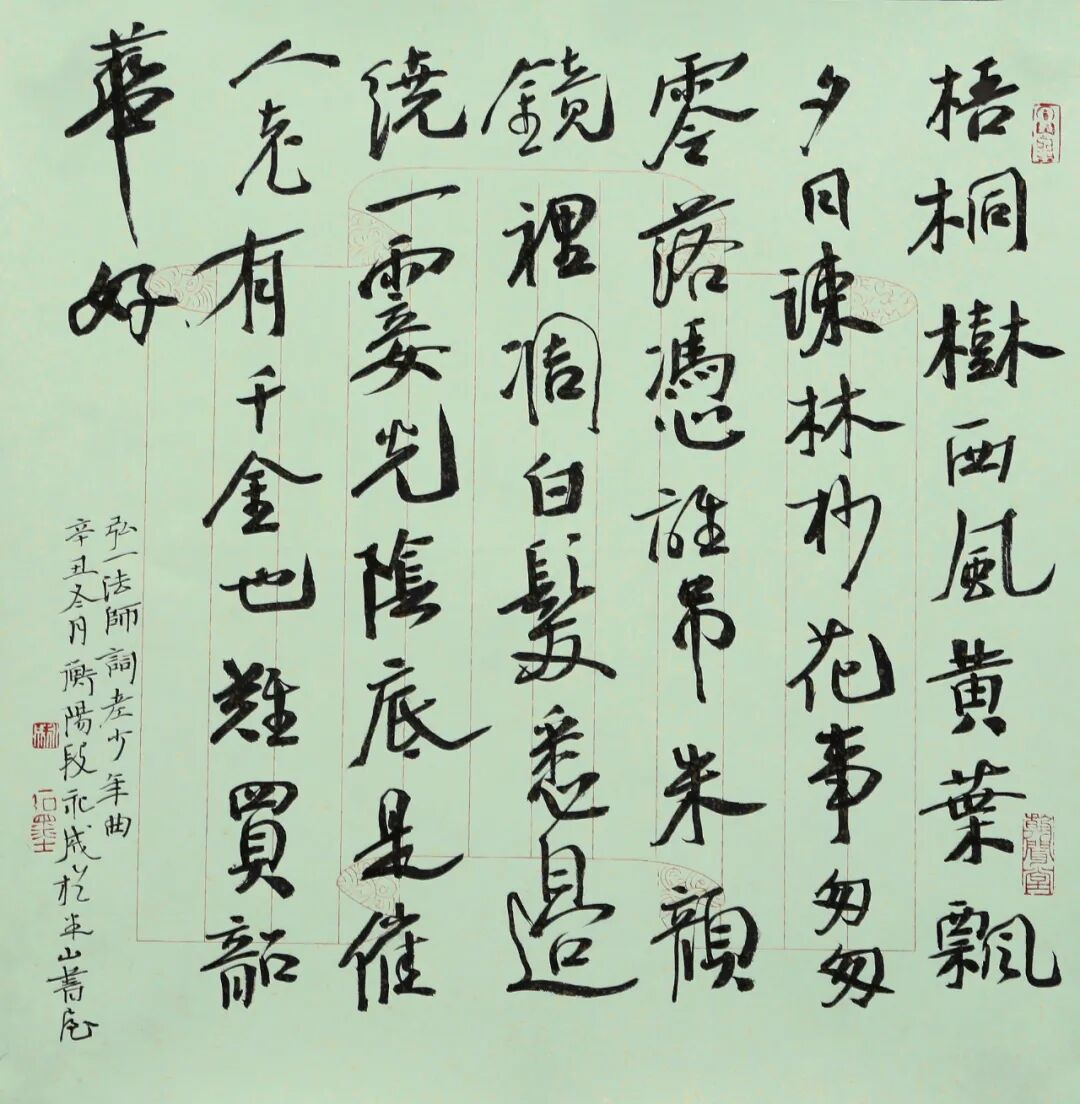 梧桐樹西風黄葉飄
夕日踈林杪花事匆匆
零落憑誰吊朱顔
鏡裡凋白髮愁邊
繞一霎光陰底是催
人老有千金也難買韶
華好
弘一法師詞老少年曲
辛丑冬月衡陽段成於山書屋